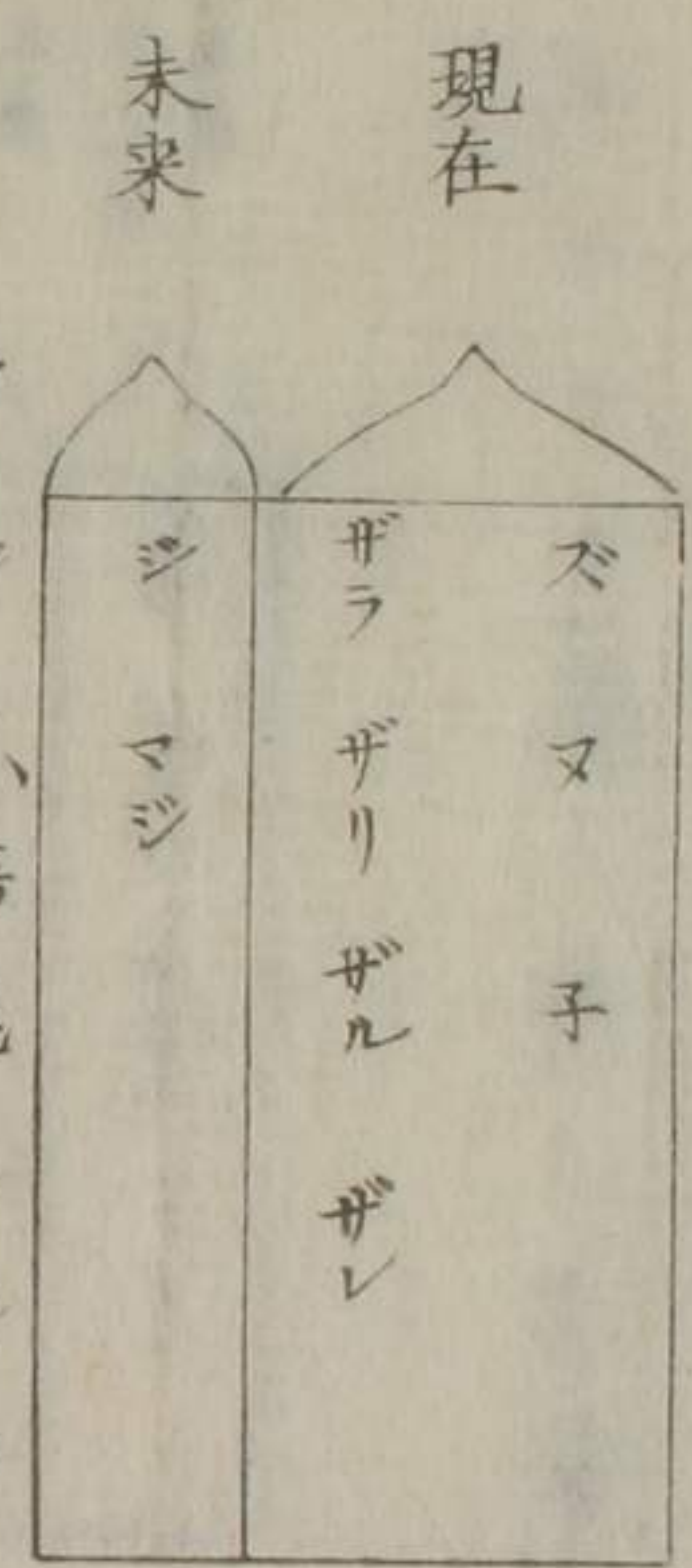 現在
ズ ヌ 子
ザラ ザリ ザル ザレ
未来
ジ マジ